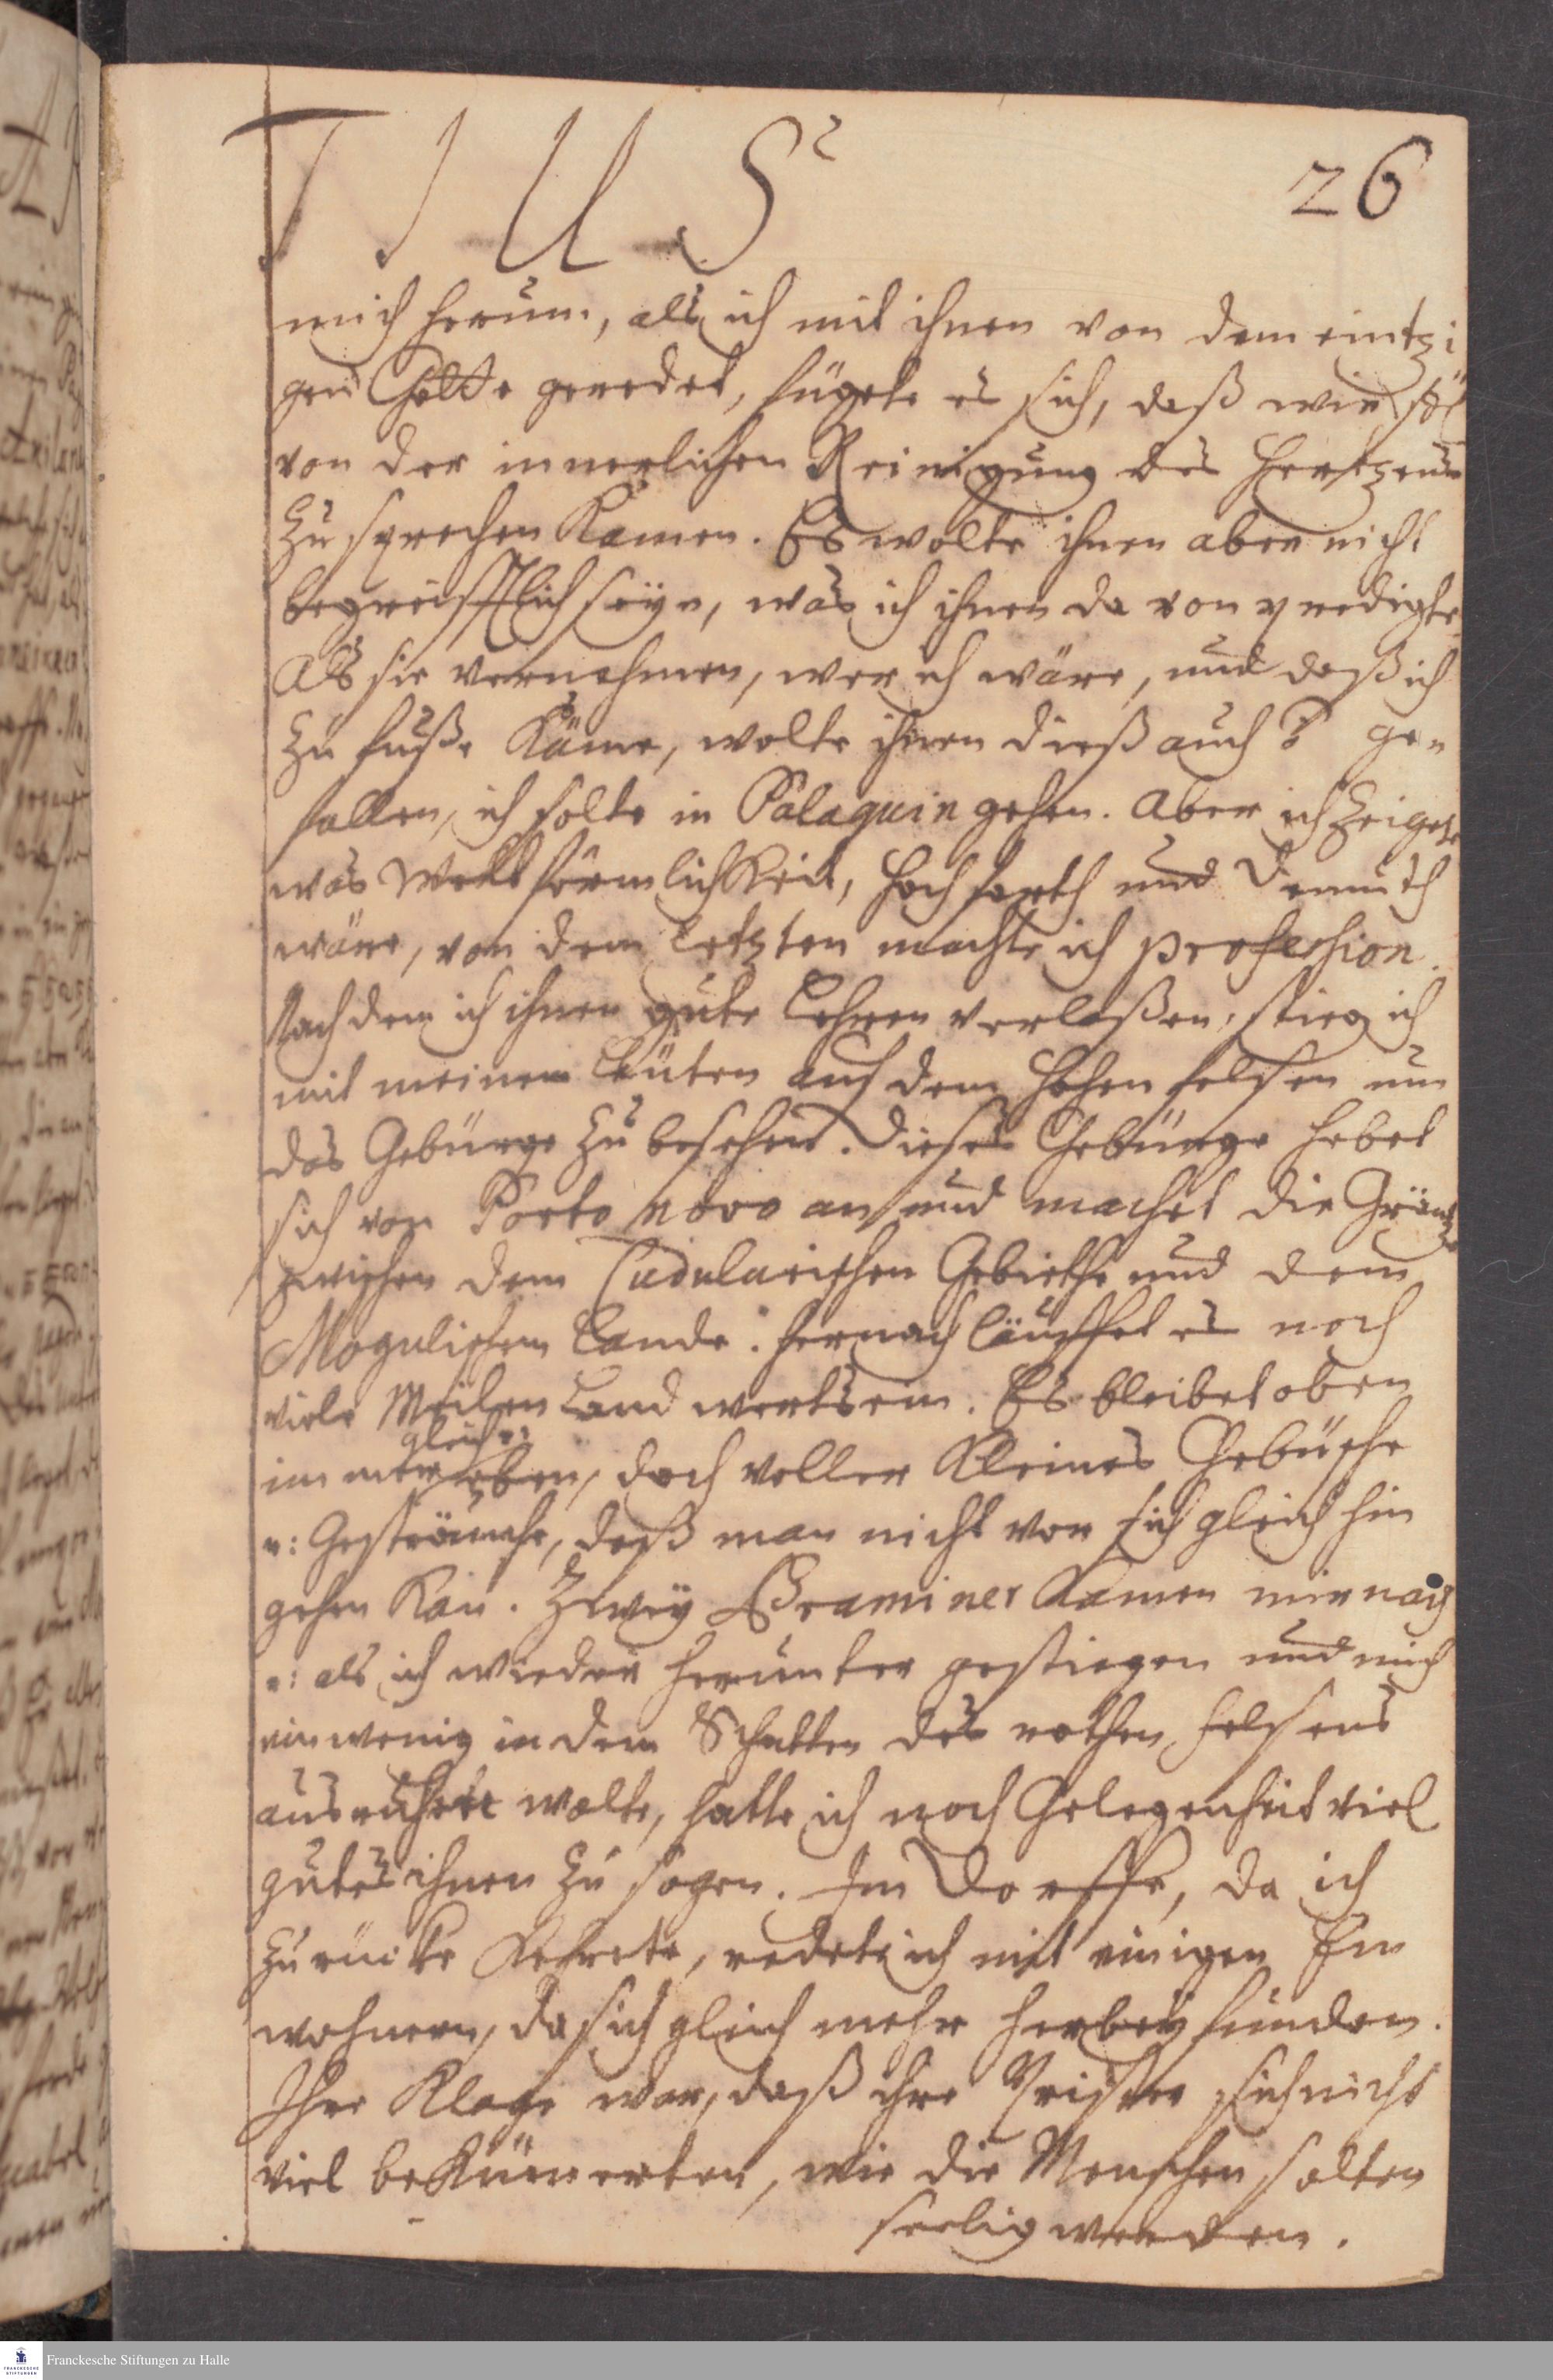 TIUS
26
mich herum, als ich mit ihnen von dem eintzi
gen Gotte geredet, fügete es sich, daß wir
von der innerlichen Reinigung des Hertzens
zu sprechen kamen. Es wolte ihnen aber nicht
begreifflich seyn, was ich ihnen da von predigte.
Als sie vernahmen, wer ich wäre, und daß ich
zu fuße käme, wolte ihnen dieß auch ge-
fallen, ich solte in Palaquin gehen. Aber ich zeigete
was Weltförmlichkeit, Hochfarth und Demuth
wäre, von dem letzten machte ich profession.
Nach dem ich ihnen gute Lehren verlaßen, stieg ich
mit meinen Leuten auf dem hohen felsen um
das Gebürge zu besehen. Dieses Gebürge hebet
sich von Porto novo an und machet die Gräntze
zwischen dem Cudulurischen Gebiethe und dem
Mogulischen Lande. hernach läuffet es noch
viele Meilen Land werts ein. Es bleibet oben
gleich:
immer eben, doch voller kleines Gebüsche
u: Gesträuche, daß man nicht vor sich gleich hin
gehen kan. Zwey Braminer kamen mir nach
u: als ich wieder herunter gestiegen und mich
ein wenig in dem Schatten des rothen felsens
ausruhete wolte, hatte ich noch Gelegenheit viel
gutes ihnen zu sagen. Im Dorffe, da ich
zurücke kehrete, redete ich mit einigen Ein
wohnern, da sich gleich mehr herbey funden.
Ihre Klage war, daß ihre Prister sich nicht
viel bekümerten, wie die Menschen solten
seelig werden.
Franckesche Stiftungen zu Halle